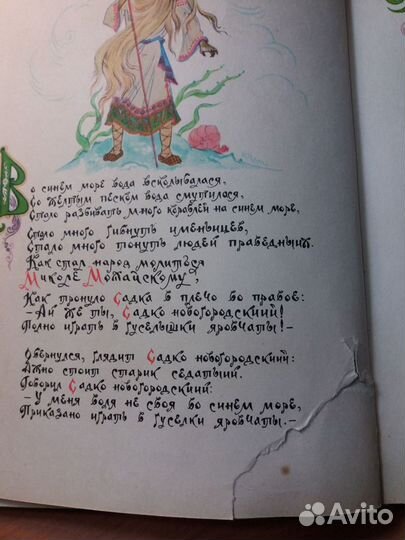 Во синем море вода всколыбалася,
Со жёлтым песком вода смутилася,
Стало разбивать много кораблей на синем море,
Стало много гибнуть именьицев,
Стало много тонуть людей праведныих.
Как стал народ молиться
Миколе Можайскому,
Как тронуло Садка в плечо во правое:
– Ай же ты, Садко новогородскиий!
Полно играть в гуселышки яровчаты! –
Обернулся, глядит Садко новогородскиий:
Ажно стоит старик седатыий.
Говорил Садко новогородскиий:
– У меня воля не своя во синем море,
Приказано играть в гуселки яровчаты. –
Avito